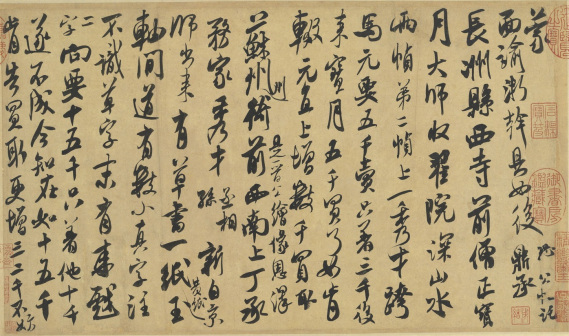 蒙
面諭浙幹具如後
鼎丞
長洲縣西寺前僧正寶
月大師收翟院深山水
兩幀第二幀上一秀才跨
馬元要五千賣只著三千後
來寶月五千買了如肯
輟元直上增數千買取
蘇州州衙前西南上丁承
務家秀才孫丞相新自京
是晉公繪像恩澤
師出來有草書一紙王
黃紙
軸間道有數小真字注
不識草字末有來戲
二字向要十五千只著他十千
遂不成今知在如十五千
肯告買取更增三二千不妨